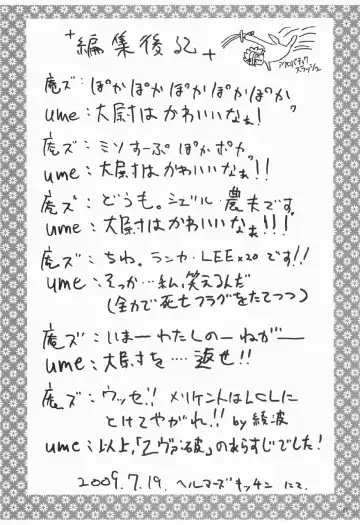 +編集後記+
アクロバティック
スラッシュ
庵ズ:ぽかぽかぽかぽかぽか
ume:大尉はかわいいなぁ!
庵ズ:ミソすーぷ ぽか ポカ
ume:大尉はかわいいなぁ!!
庵ズ:どうも。シエル・農夫です
ume:大尉はかわいいなぁ!!!
庵ズ:ちわ。ランカ・LEE×20です!!
ume:そっか…私、笑えるんだ
(全力で死亡フラグをたてつつ)
庵ズ:いまーわたしのーねがー
ume:大尉を…返せ!!
庵ズ:ウッセ!! メリケントはLCLに
とけてやがれ!! by綾波
ume:以上、「ヱヴァ破」のあらすじでした!
2009.7.19. ヘルマーズキッチン にて.